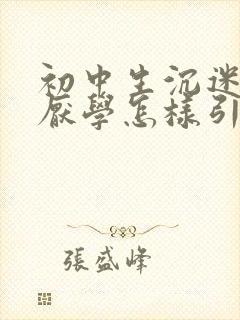 初中生沉迷
厭學怎樣引
張盛峰